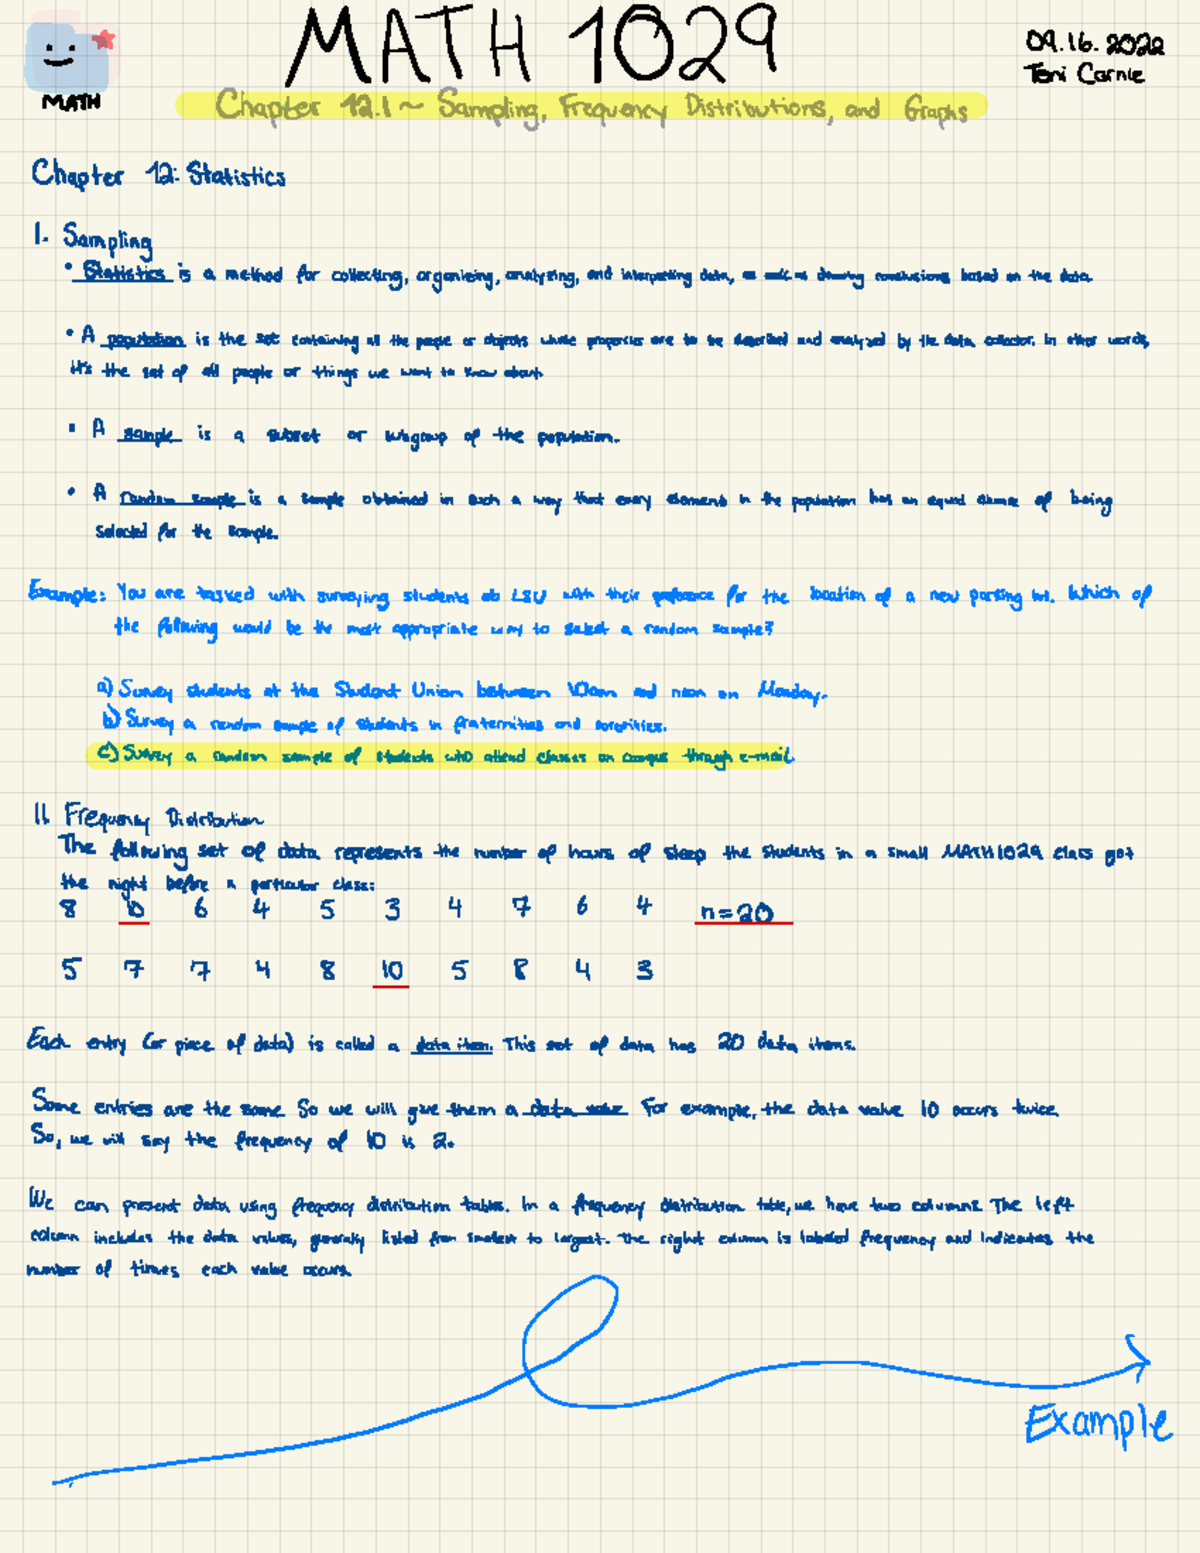 MATH 1029
09.16.2022
Teni Carnie
MATH
Chapter 12.1 ~ Sampling, Frequency Distributions, and Graphs
Chapter 12: Statistics
I. Sampling
• Statistics is a method for collecting, organizing, analyzing, and interpreting data, as well as drawing conclusions based on the data.
• A population is the set containing all the people or objects whose properties are to be described and analyzed by the data collector. In other words,
it's the set of all people or things we want to know about.
• A sample is a subset or subgroup of the population.
• A random sample is a sample obtained in such a way that every element in the population has an equal chance of being
selected for the sample.
Example: You are tasked with surveying students at LSU with their preference for the location of a new parking lot. Which of
the following would be the most appropriate way to select a random sample?
a) Survey students at the Student Union between 10am and noon on Monday.
b) Survey a random sample of students in fraternities and sororities.
c) Survey a random sample of students who attend classes on campus through e-mail.
II. Frequency Distribution
The following set of data represents the number of hours of sleep the students in a small MATH1029 class got
the night before a particular class:
8 10 6 4 5 3 4 7 6 4 n=20
5 7 7 4 8 10 5 8 4 3
Each entry (or piece of data) is called a data item. This set of data has 20 data items.
Some entries are the same So we will give them a data value For example, the data value 10 occurs twice
So, we will say the frequency of 10 is 2.
We can present data using frequency distribution tables. In a frequency distribution table, we have two columns. The left
column includes the data values, generally listed from smallest to largest. The right column is labeled frequency and indicates the
number of times each value occurs.
Example